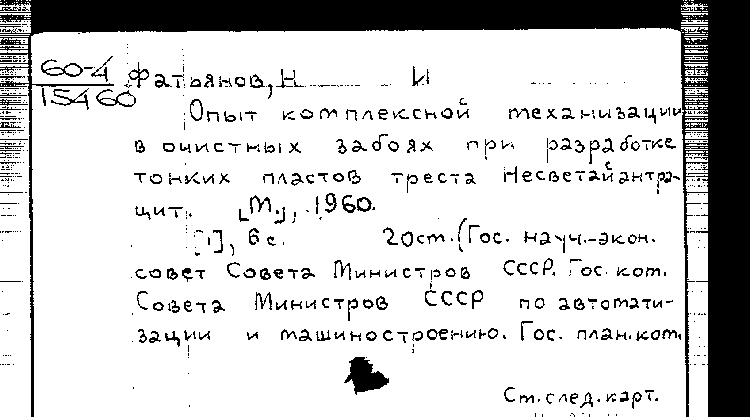 60-4
15460
Фатьянов, Н И
Опыт комплексной механизации
в очистных забоях при разработке
тонких пластов треста Несветайантра-
цит. [М.], 1960.
[1], 6 с. 20 см. (Гос. науч.-экон.
совет Совета Министров СССР. Гос. ком.
Совета Министров СССР по автомати-
зации и машиностроению. Гос. план. ком.
См. след. карт.